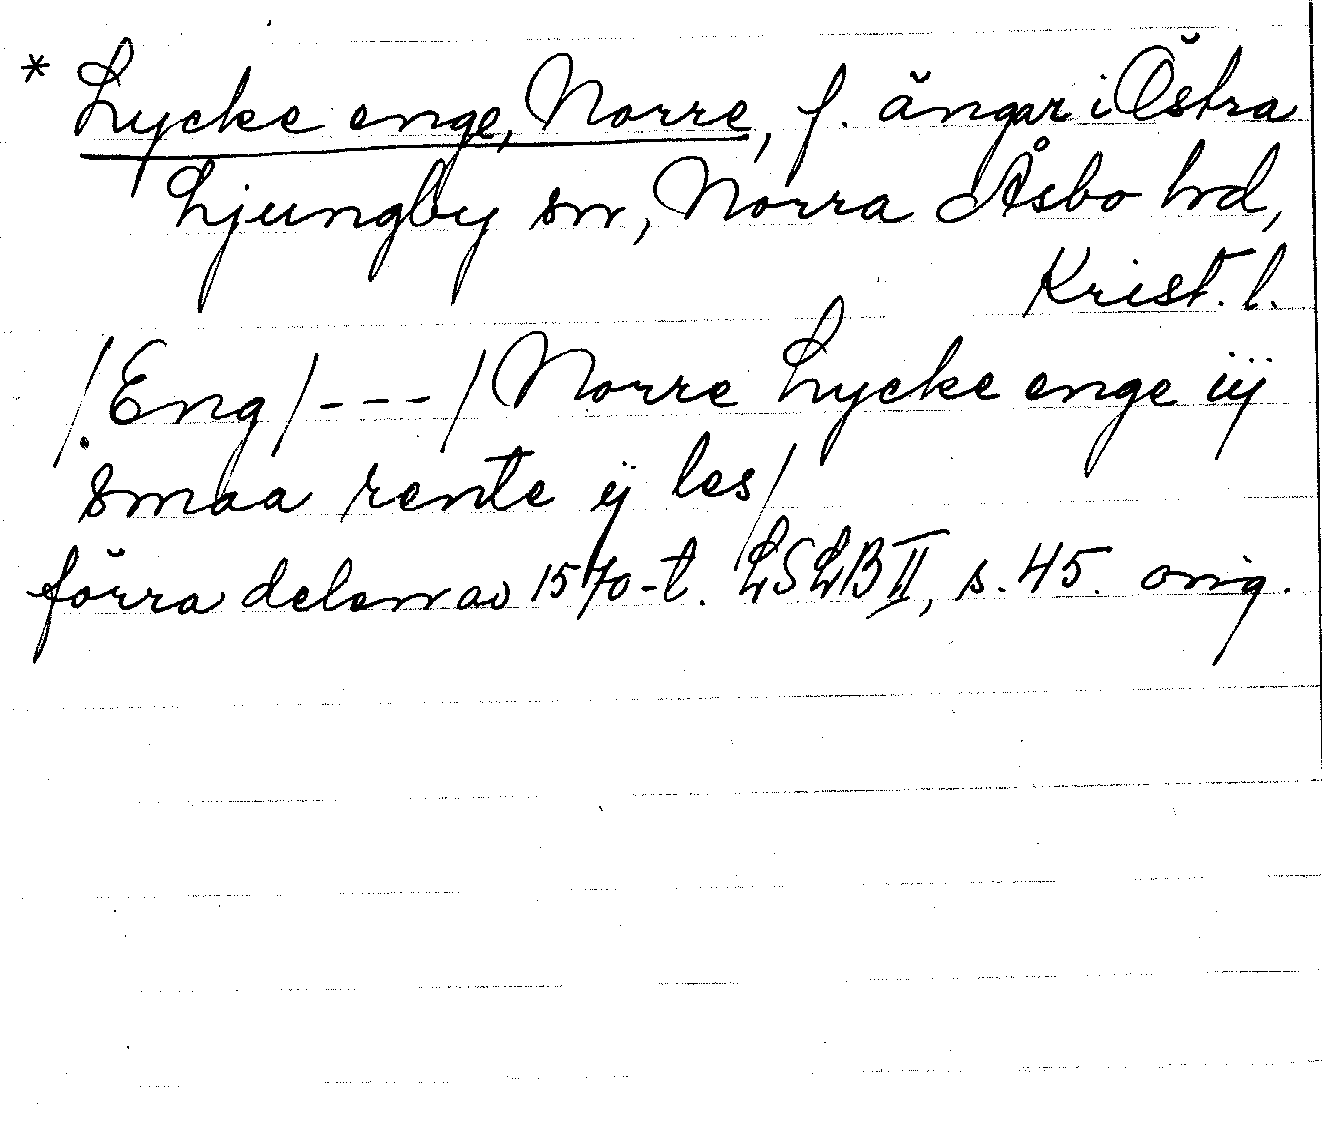 * Lycke enge, Norre, f. ängar i Östra
Ljungby sn, Norra Åsbo hd,
Krist. l.
/Eng/---/Norre Lycke enge iij
smaa rente ij les/
förra delen av 1570-t. LSLB II, s. 45. orig.